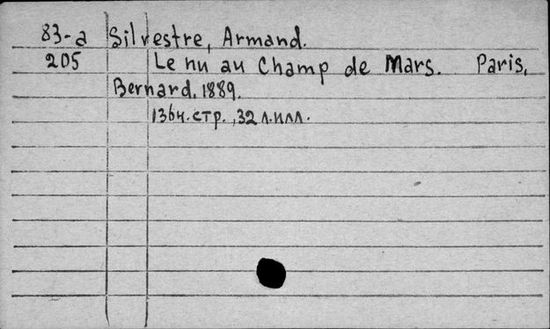 83-a Silvestre, Armand.
205 Le nu au Champ de Mars. Paris,
Bernard. 1889.
136н.стр., 32 л.илл.